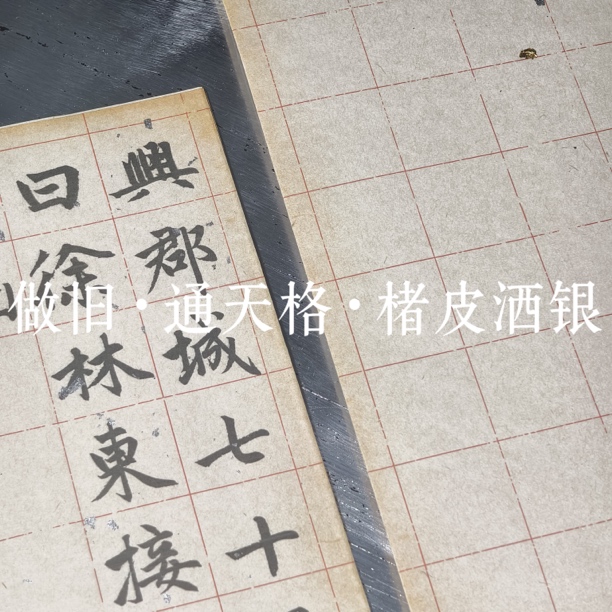 興郡城七十
曰徐林東接
做旧·通天格·楮皮洒银